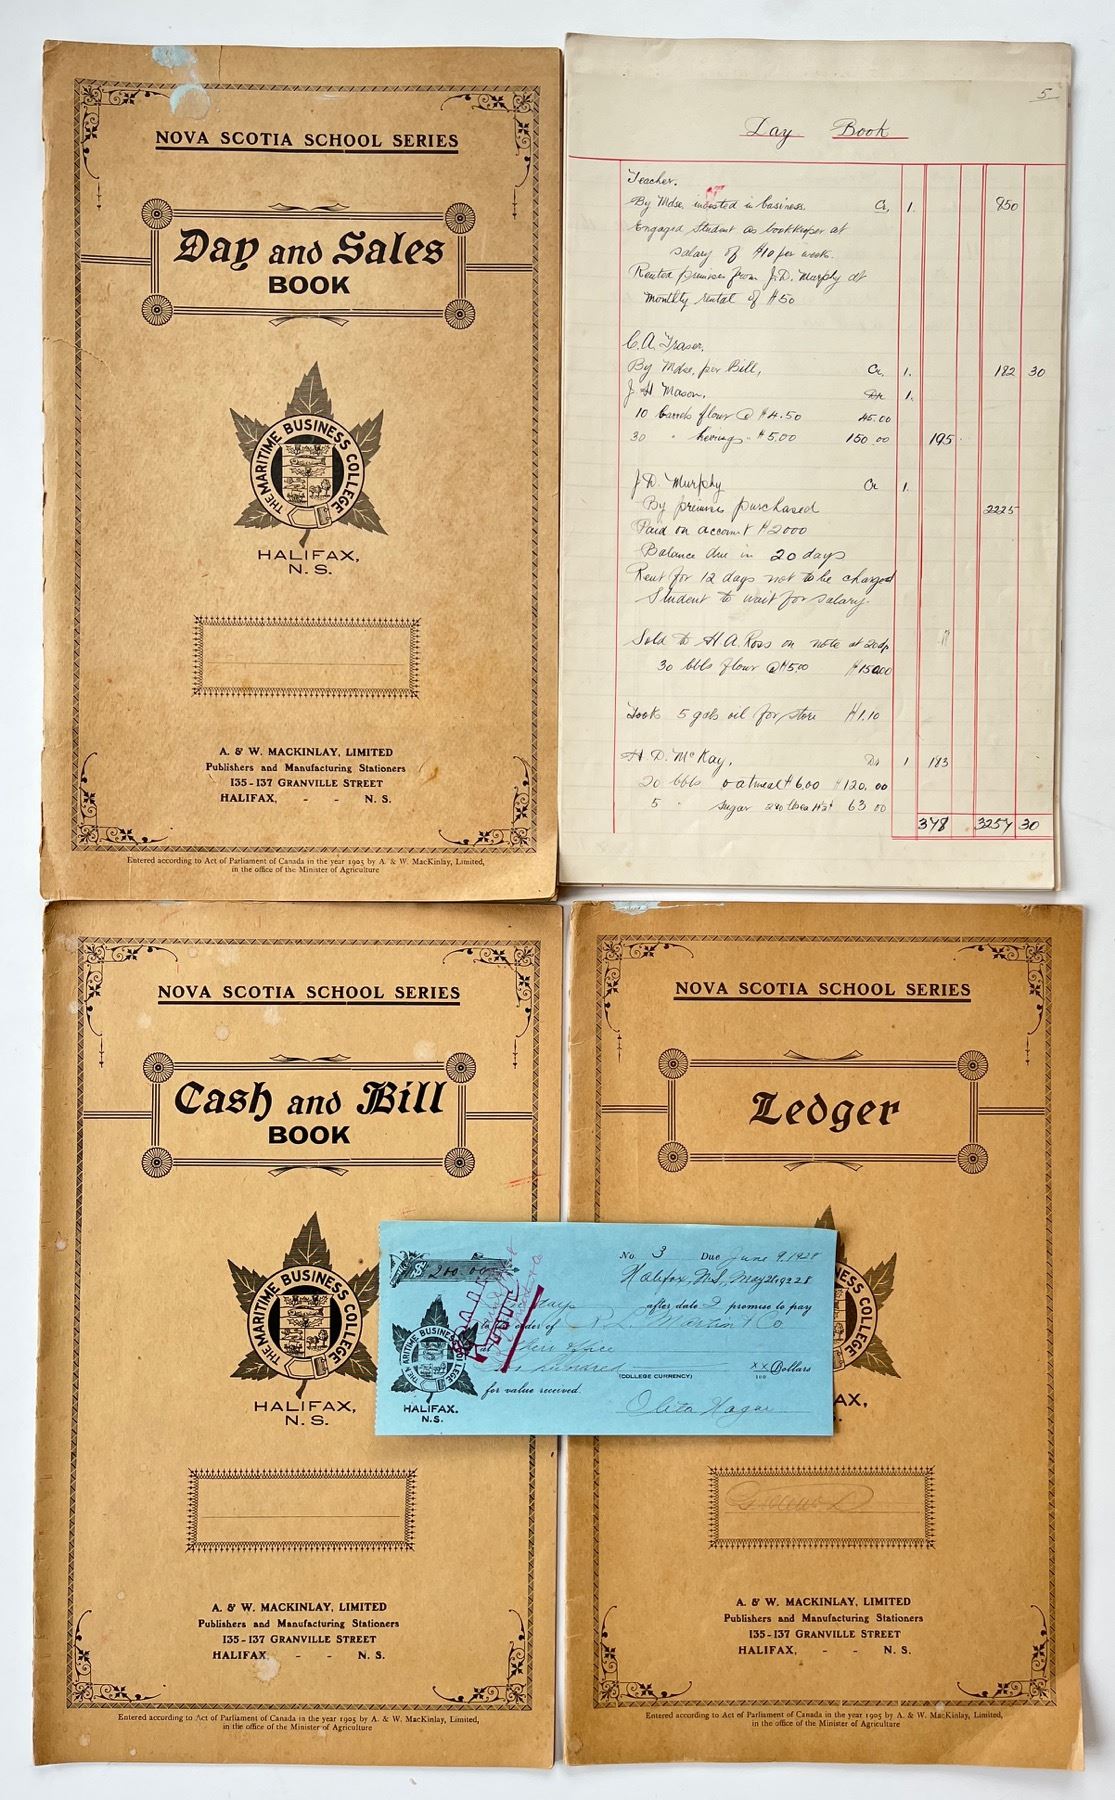 NOVA SCOTIA SCHOOL SERIES
Day and Sales
BOOK
THE MARITIME BUSINESS COLLEGE
HALIFAX,
N. S.
A. & W. MACKINLAY, LIMITED
Publishers and Manufacturing Stationers
135-137 GRANVILLE STREET
HALIFAX, - - N. S.
Entered according to Act of Parliament of Canada in the year 1905 by A. & W. MacKinlay, Limited,
in the office of the Minister of Agriculture
5
Day Book
Teacher.
By Mdse. invested in business. Cr. 1. 850
Engaged Student as bookkeeper at
salary of $10 per week.
Rented premises from J.D. Murphy at
monthly rental of $50
C.A. Fraser.
By Mdse. per Bill, Cr. 1. 182 30
J H Mason, Dr 1.
10 barrels flour @ $4.50 45.00
30 " herring " $5.00 150 00 195
J.D. Murphy Cr 1.
By premises purchased 2225
Paid on account $2000
Balance due in 20 days
Rent for 12 days not to be charged
Student to wait for salary.
Sold to H A. Ross on note at
30 bbls flour @ $5.00 $150.00
Took 5 gals oil for store $1.10
H D. McKay, Dr 1 183
20 bbls oatmeal $6.00 $120.00
5 " sugar 63 00
378 3257 30
NOVA SCOTIA SCHOOL SERIES
Cash and Bill
BOOK
THE MARITIME BUSINESS COLLEGE
HALIFAX,
N. S.
A. & W. MACKINLAY, LIMITED
Publishers and Manufacturing Stationers
135-137 GRANVILLE STREET
HALIFAX, - - N. S.
Entered according to Act of Parliament of Canada in the year 1905 by A. & W. MacKinlay, Limited,
in the office of the Minister of Agriculture
NOVA SCOTIA SCHOOL SERIES
Ledger
NESS COLLEGE
AX,
A. & W. MACKINLAY, LIMITED
Publishers and Manufacturing Stationers
135-137 GRANVILLE STREET
HALIFAX, - - N. S.
Entered according to Act of Parliament of Canada in the year 1905 by A. & W. MacKinlay, Limited,
in the office of the Minister of Agriculture
$ 200.00
No. 3 Due June 9, 1928
Halifax, N.S., May
days after date I promise to pay
order of Martin & Co
at office
hundred xx/100 Dollars
(COLLEGE CURRENCY)
for value received.
THE MARITIME BUSINESS COLLEGE
HALIFAX.
N.S.